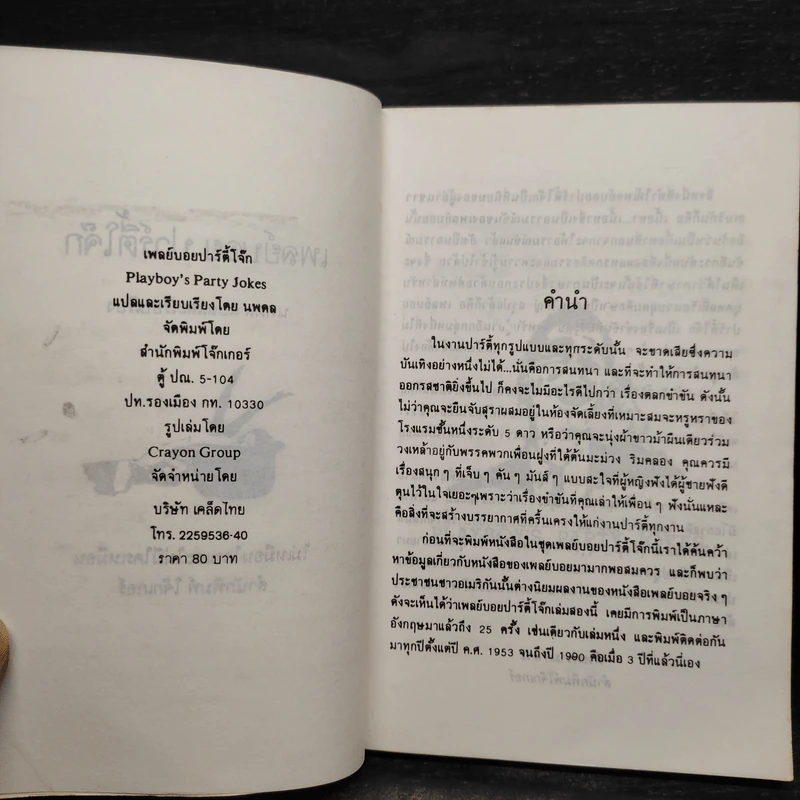 เพลย์บอยปาร์ตี้โจ๊ก
Playboy's Party Jokes
แปลและเรียบเรียงโดย นพดล
จัดพิมพ์โดย
สำนักพิมพ์โจ๊กเกอร์
ตู้ ปณ. 5-104
ปท.รองเมือง กท. 10330
รูปเล่มโดย
Crayon Group
จัดจำหน่ายโดย
บริษัท เคล็ดไทย
โทร. 2259536-40
ราคา 80 บาท
คำนำ
ในงานปาร์ตี้ทุกรูปแบบและทุกระดับนั้น จะขาดเสียซึ่งความ
บันเทิงอย่างหนึ่งไม่ได้...นั่นคือการสนทนา และที่จะทำให้การสนทนา
ออกรสชาติยิ่งขึ้นไป ก็คงจะไมมีอะไรดีไปกว่า เรื่องตลกขำขัน ดังนั้น
ไม่ว่าคุณจะยืนจับสุราผสมอยู่ในห้องจัดเลี้ยงที่เหมาะสมจะหรูหราของ
โรงแรมชั้นหนึ่งระดับ 5 ดาว หรือว่าคุณจะนุ่งผ้าขาวม้าผืนเดียวร่วม
วงเหล้าอยู่กับพรรคพวกเพื่อนฝูงที่ใต้ต้นมะม่วง ริมคลอง คุณควรมี
เรื่องสนุก ๆ ที่เจ็บ ๆ คัน ๆ มันส์ ๆ แบบสะใจที่ผู้หญิงฟังได้ผู้ชายฟังดี
ตุนไว้ในใจเยอะๆเพราะว่าเรื่องขำขันที่คุณเล่าให้เพื่อน ๆ ฟังนั่นแหละ
คือสิ่งที่จะสร้างบรรยากาศที่ครื้นเครงให้แก่งานปาร์ตี้ทุกงาน
ก่อนที่จะพิมพ์หนังสือในชุดเพลย์บอยปาร์ตี้โจ๊กนี้เราได้ค้นคว้า
หาข้อมูลเกี่ยวกับหนังสือของเพลย์บอยมามากพอสมควร และก็พบว่า
ประชาชนชาวอเมริกันนั้นต่างนิยมผลงานของหนังสือเพลย์บอยจริง ๆ
ดังจะเห็นได้ว่าเพลย์บอยปาร์ตี้โจ๊กเล่มสองนี้ เคยมีการพิมพ์เป็นภาษา
อังกฤษมาแล้วถึง 25 ครั้ง เช่นเดียวกับเล่มหนึ่ง และพิมพ์ติดต่อกัน
มาทุกปีตั้งแต่ปี ค.ศ. 1953 จนถึงปี 1990 คือเมื่อ 3 ปีที่แล้วนี่เอง